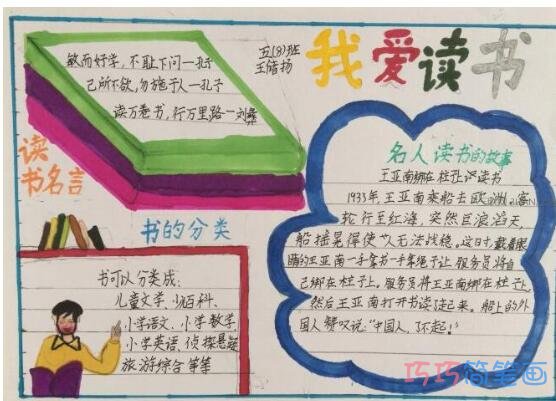 我爱读书
五(8)班
敏而好学，不耻下问一孔子
己所不欲，勿施于人一孔子
读万卷书，行万里路一刘彝
读
书名言
书的分类
书可以分类成：
儿童文学、少儿百科、
小学语文、小学数学
小学英语、侦探悬疑
旅游综合 等等
名人读书的故事
王亚南绑在柱子上读书
1933年王亚南乘船去欧洲。客
轮行至红海，突然巨浪滔天，
船摇晃得使人无法战稳。这时戴着眼
睛的王亚南一手拿书一手绳子让服务员将自
己绑在柱子上。服务员将王亚南绑在柱子上，
然后王亚南打开书读起来。船上的外
国人赞叹说："中国人，了不起！"
巧巧简笔画